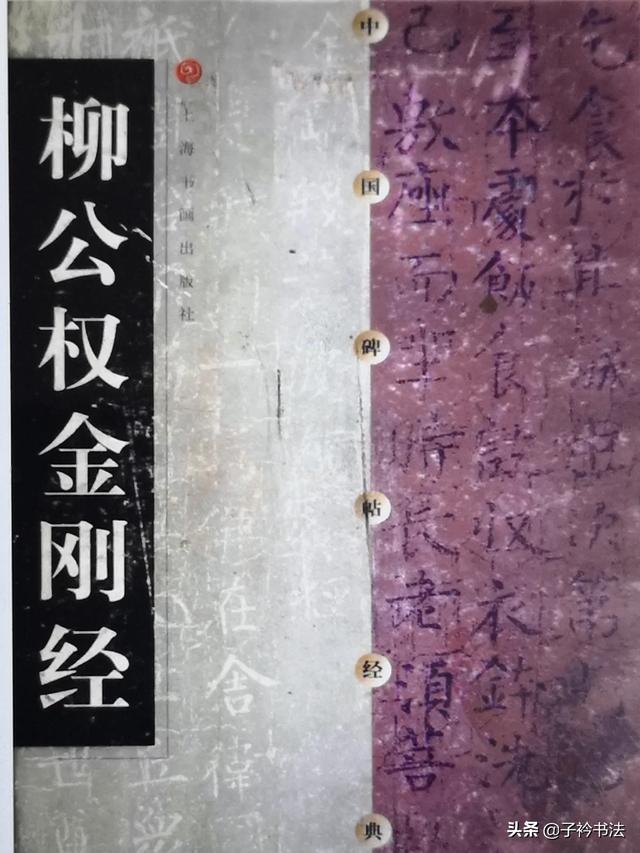 柳公权金刚经
上海书画出版社
中国碑帖经典
乞食於其城中次第乞
至本處飯食訖收衣鉢洗
己敷座而坐時長老須菩
在舍衛
祇
头条 @子衿书法